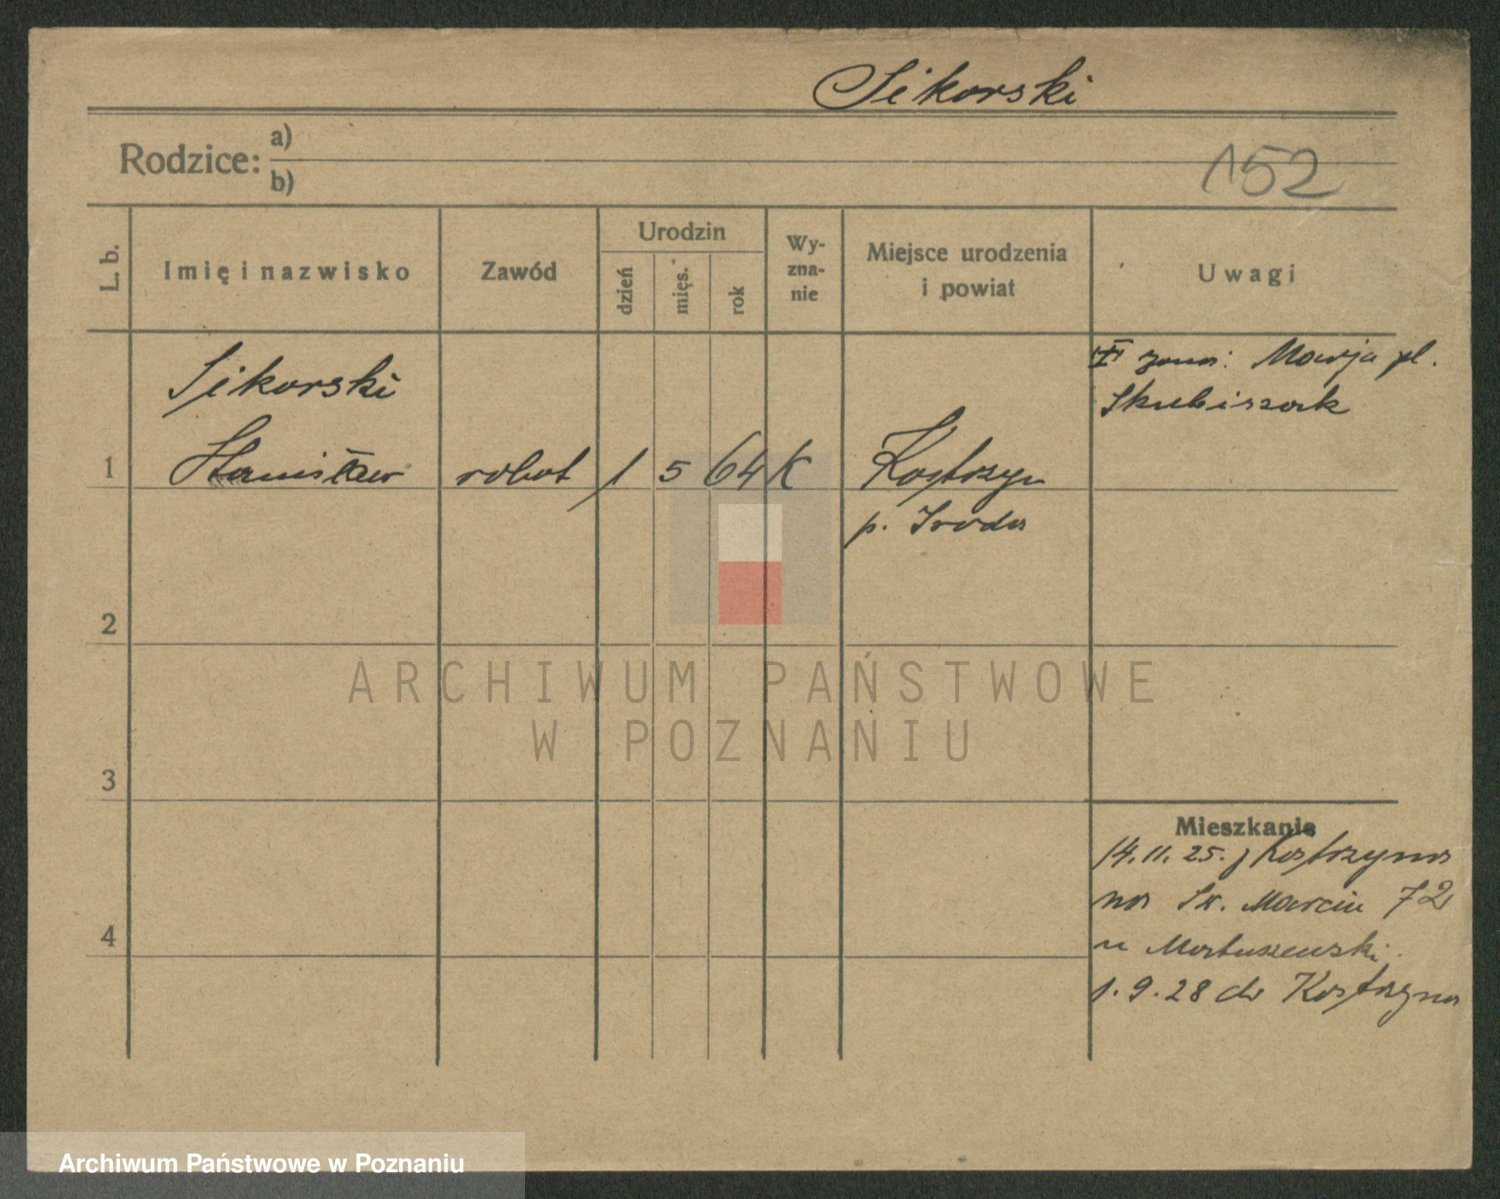 Sikorski
Rodzice: a)
b)
152
L. b.
Imię i nazwisko
Zawód
Urodzin
dzień
mięs.
rok
Wy-
zna-
nie
Miejsce urodzenia
i powiat
Uwagi
Sikorski
Stanisław
1
robot
1
5
64
K
Kostrzyn
p. Środa
żona: Marja
2
3
4
Mieszkanie
14.11.25. z Kostrzyna
na Św. Marcin 72
u
1.9.28 do Kostrzyna
ARCHIWUM PAŃSTWOWE
W POZNANIU
Archiwum Państwowe w Poznaniu